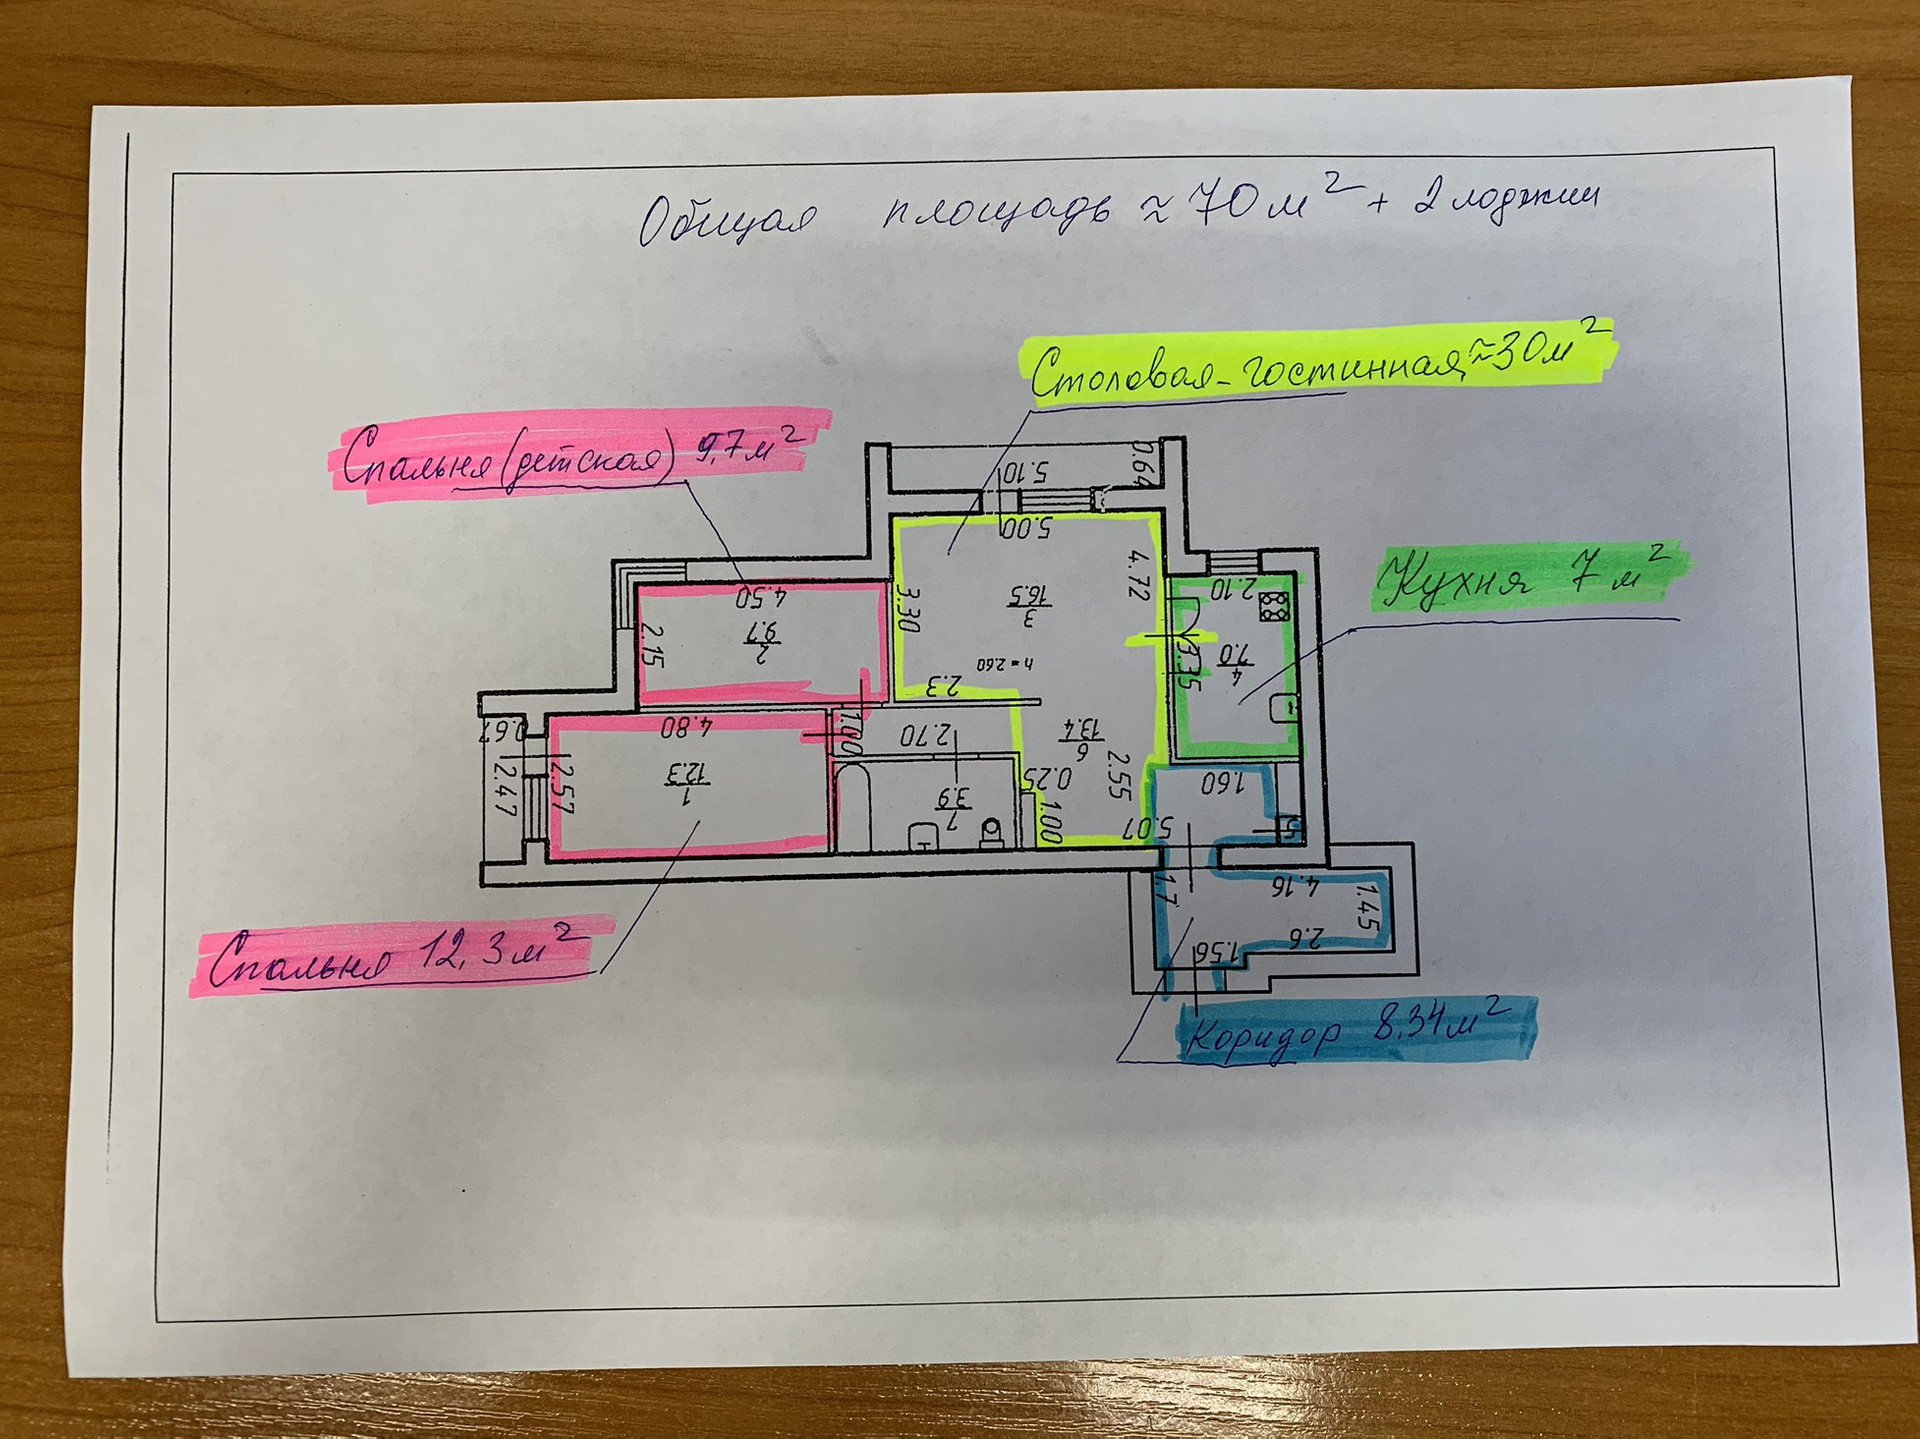 Общая площадь ≈ 70 м² + 2 лоджии
Столовая-гостинная ≈30м²
Спальня (детская) 9,7м²
5.10
0.64
5.00
4.72
3.30
16.5
3
h = 2.60
2.3
Кухня 7 м²
2.10
3.35
7.0
4
4.50
9.7
2
2.15
4.80
12.3
1
0.67
2.47
2.57
1.00
2.70
3.9
7
13.4
6
2.55
0.25
1.00
5.07
1.60
5
1.7
4.16
1.45
2.6
1.56
Спальня 12,3м²
Коридор 8,34м²